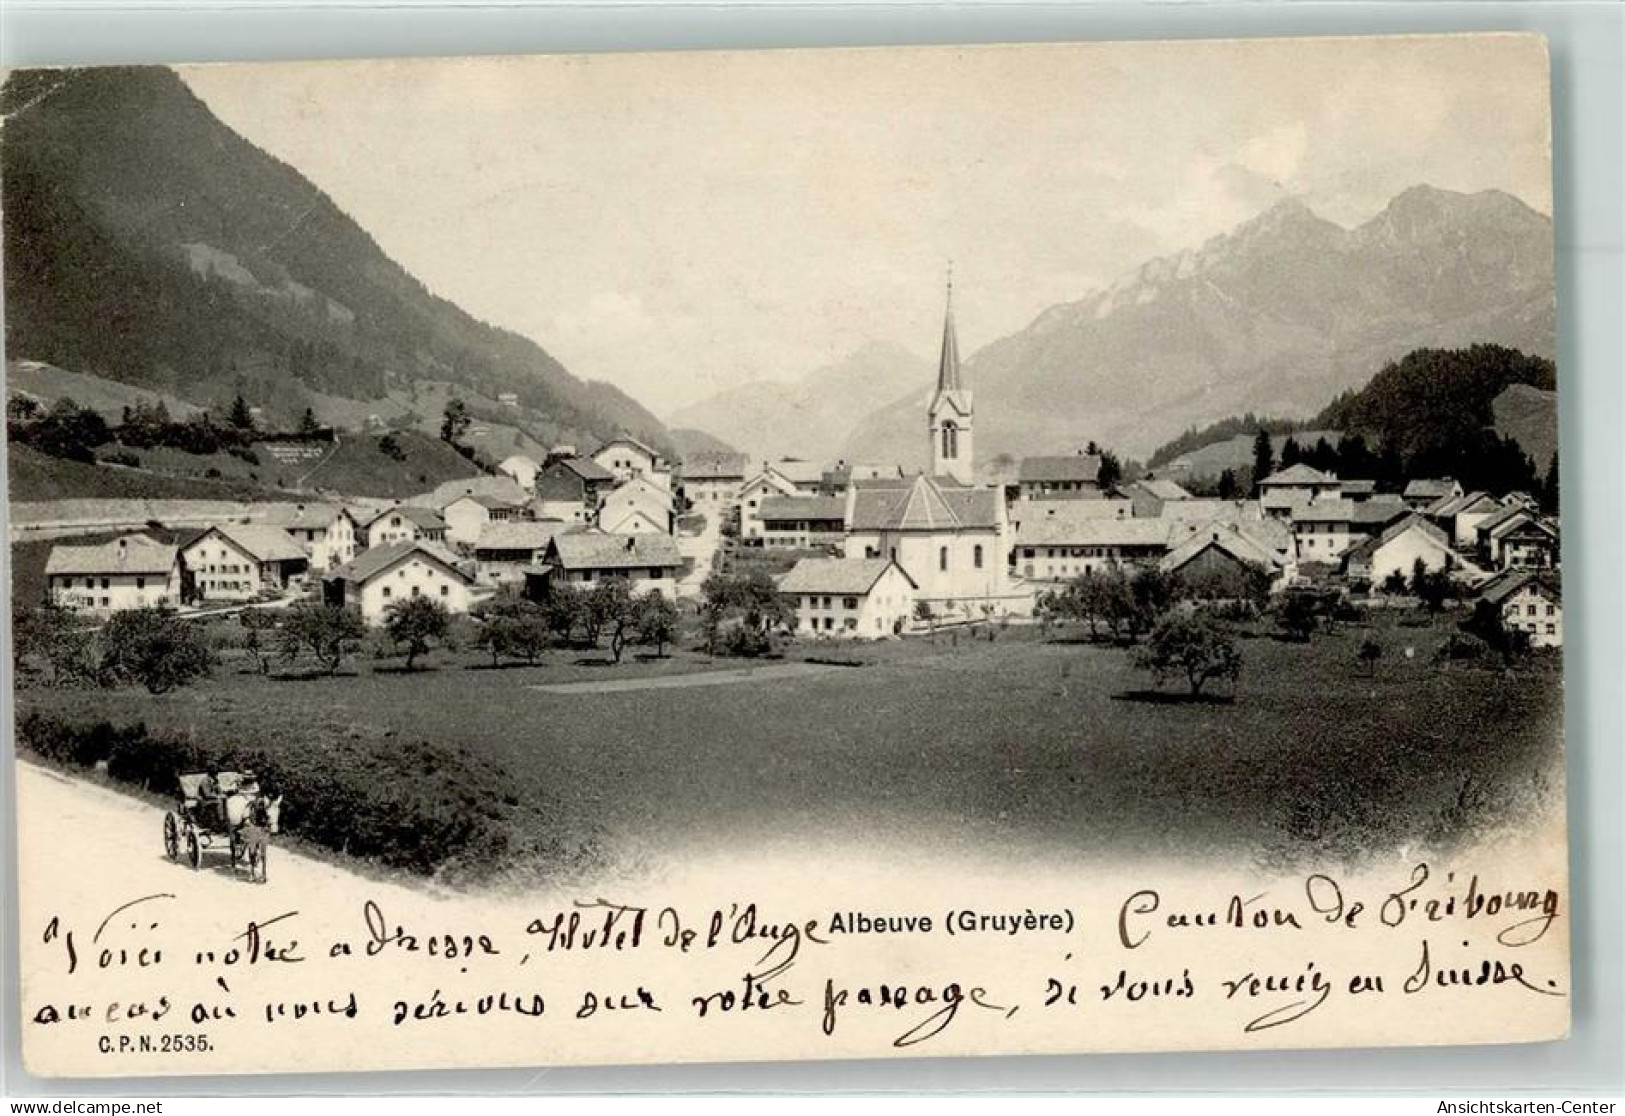 Voici notre adresse, Hôtel de l'Ange Albeuve (Gruyère) Canton de Fribourg
au cas où nous serions sur votre passage, si vous veniez en Suisse.
C.P.N. 2535.
delcampe.net
Ansichtskarten-Center